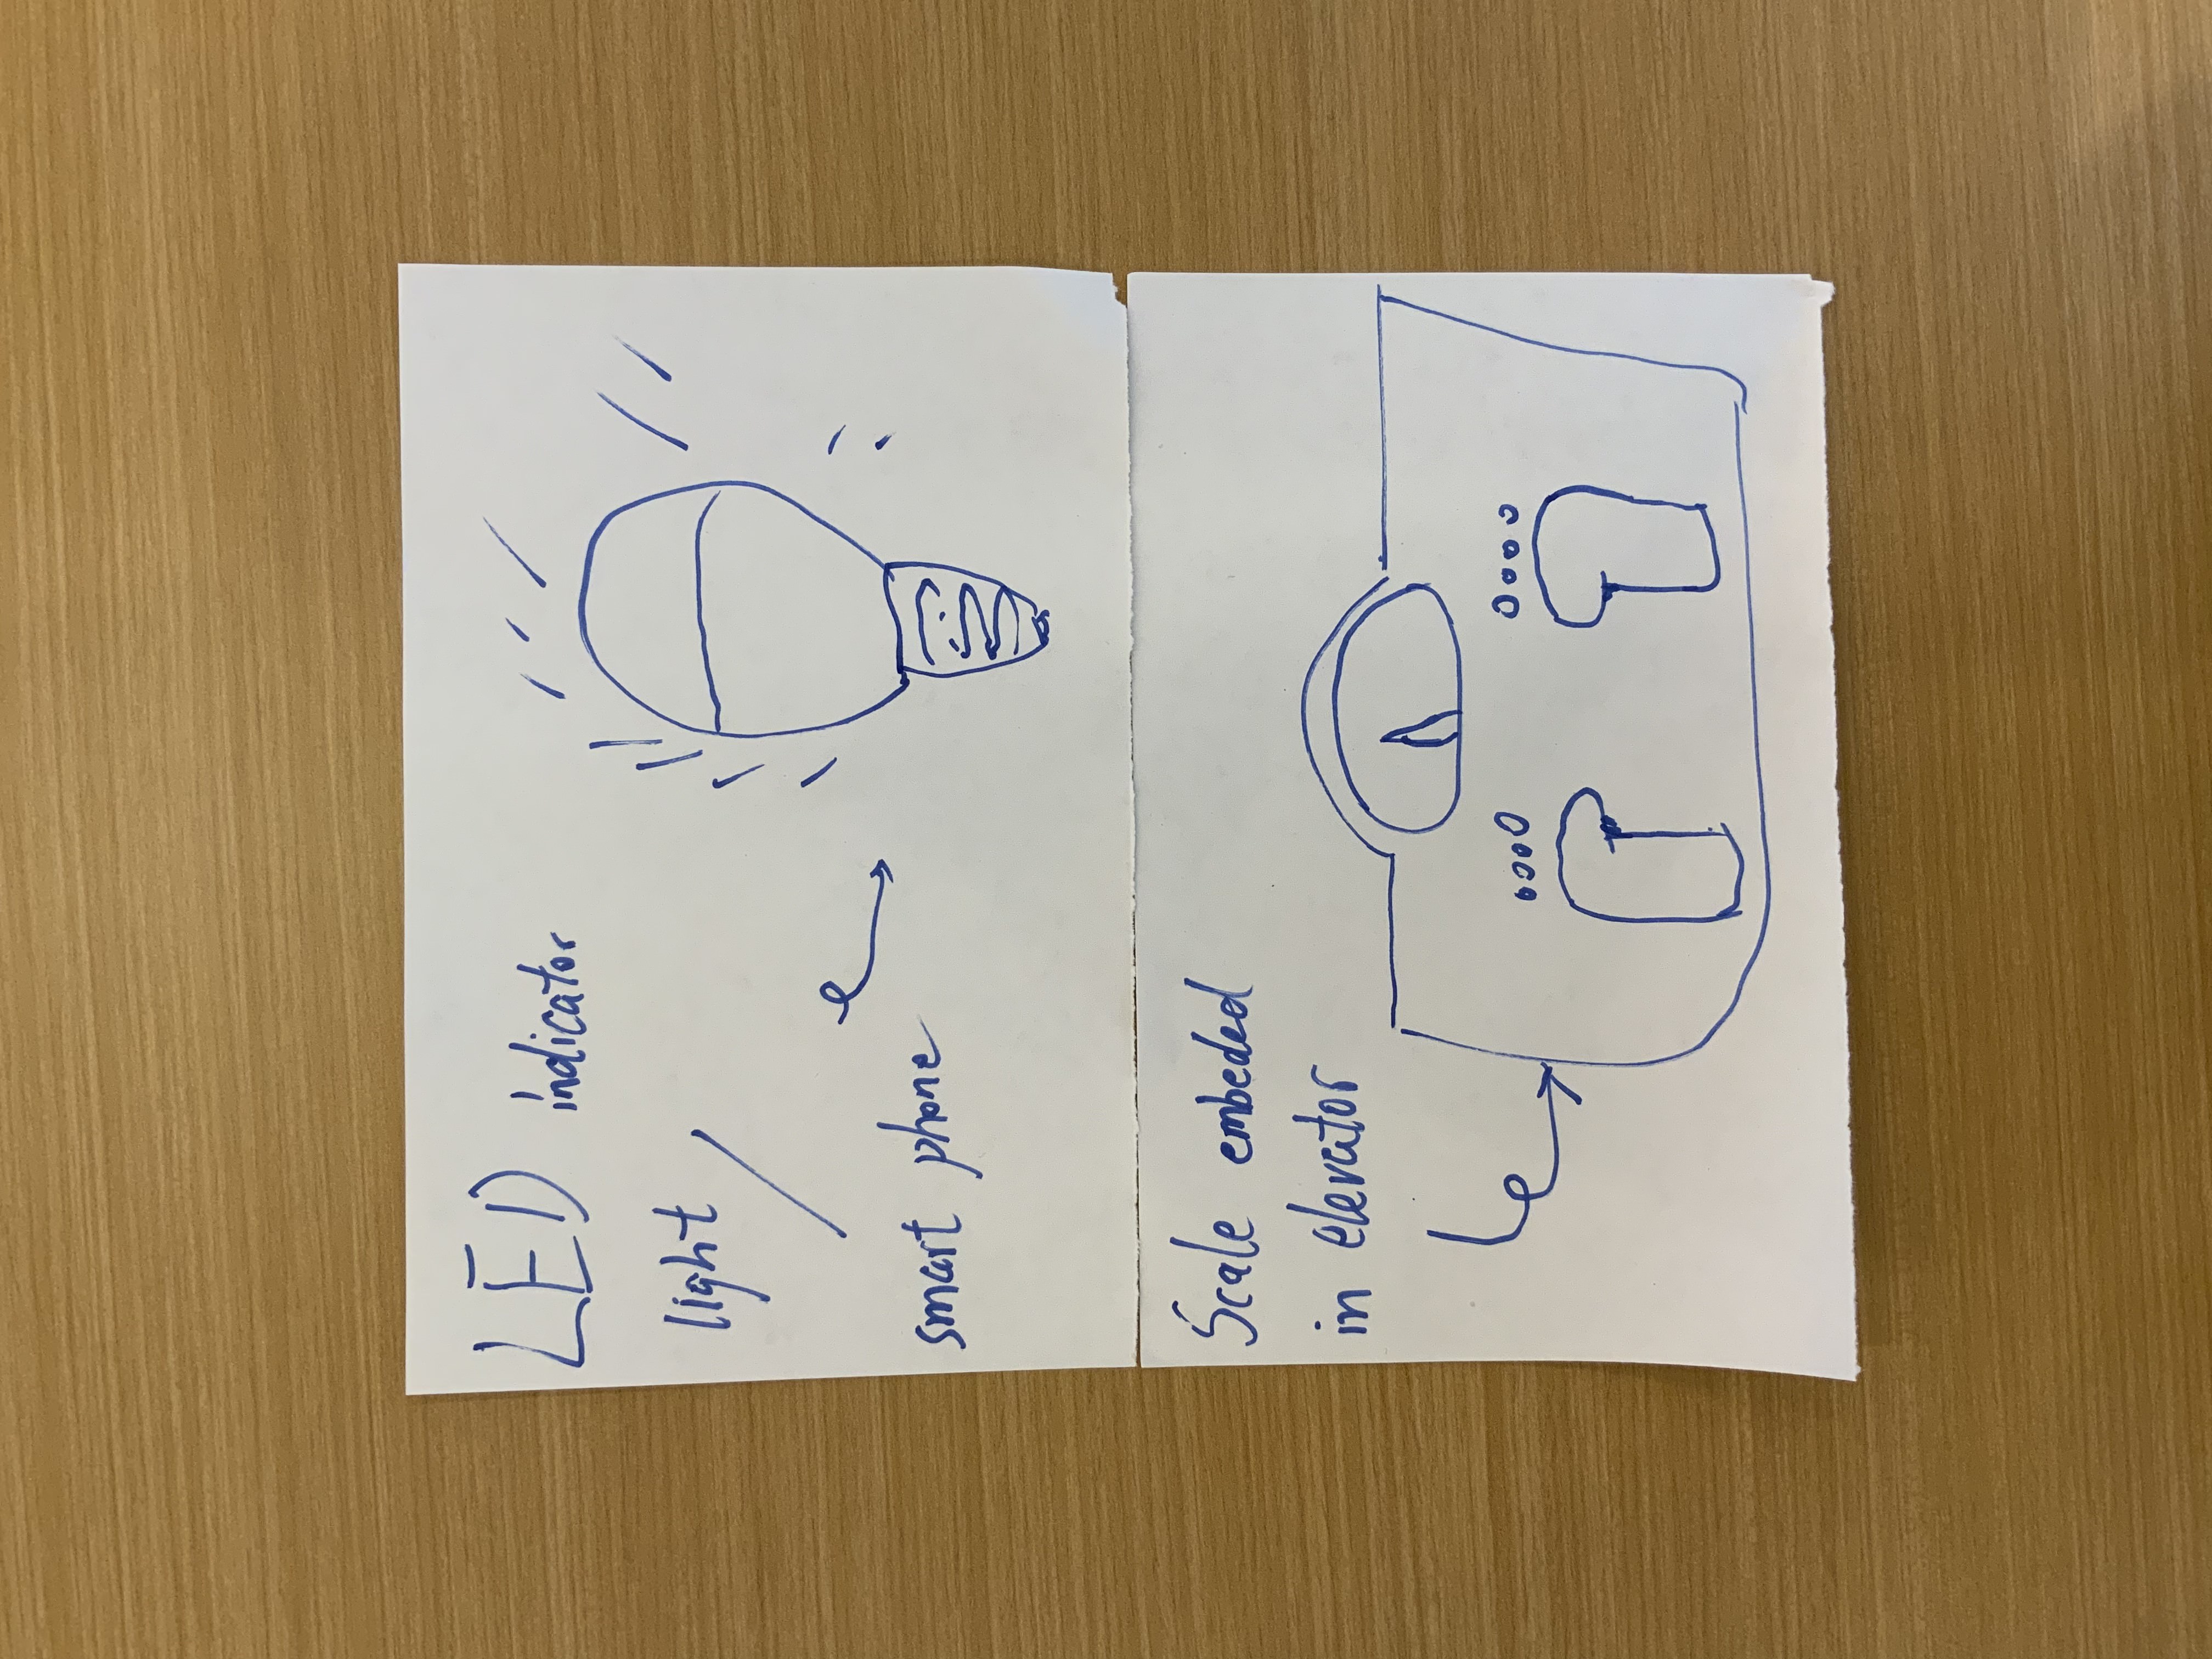 LED indicator
light /
smart phone
Scale embeded
in elevator